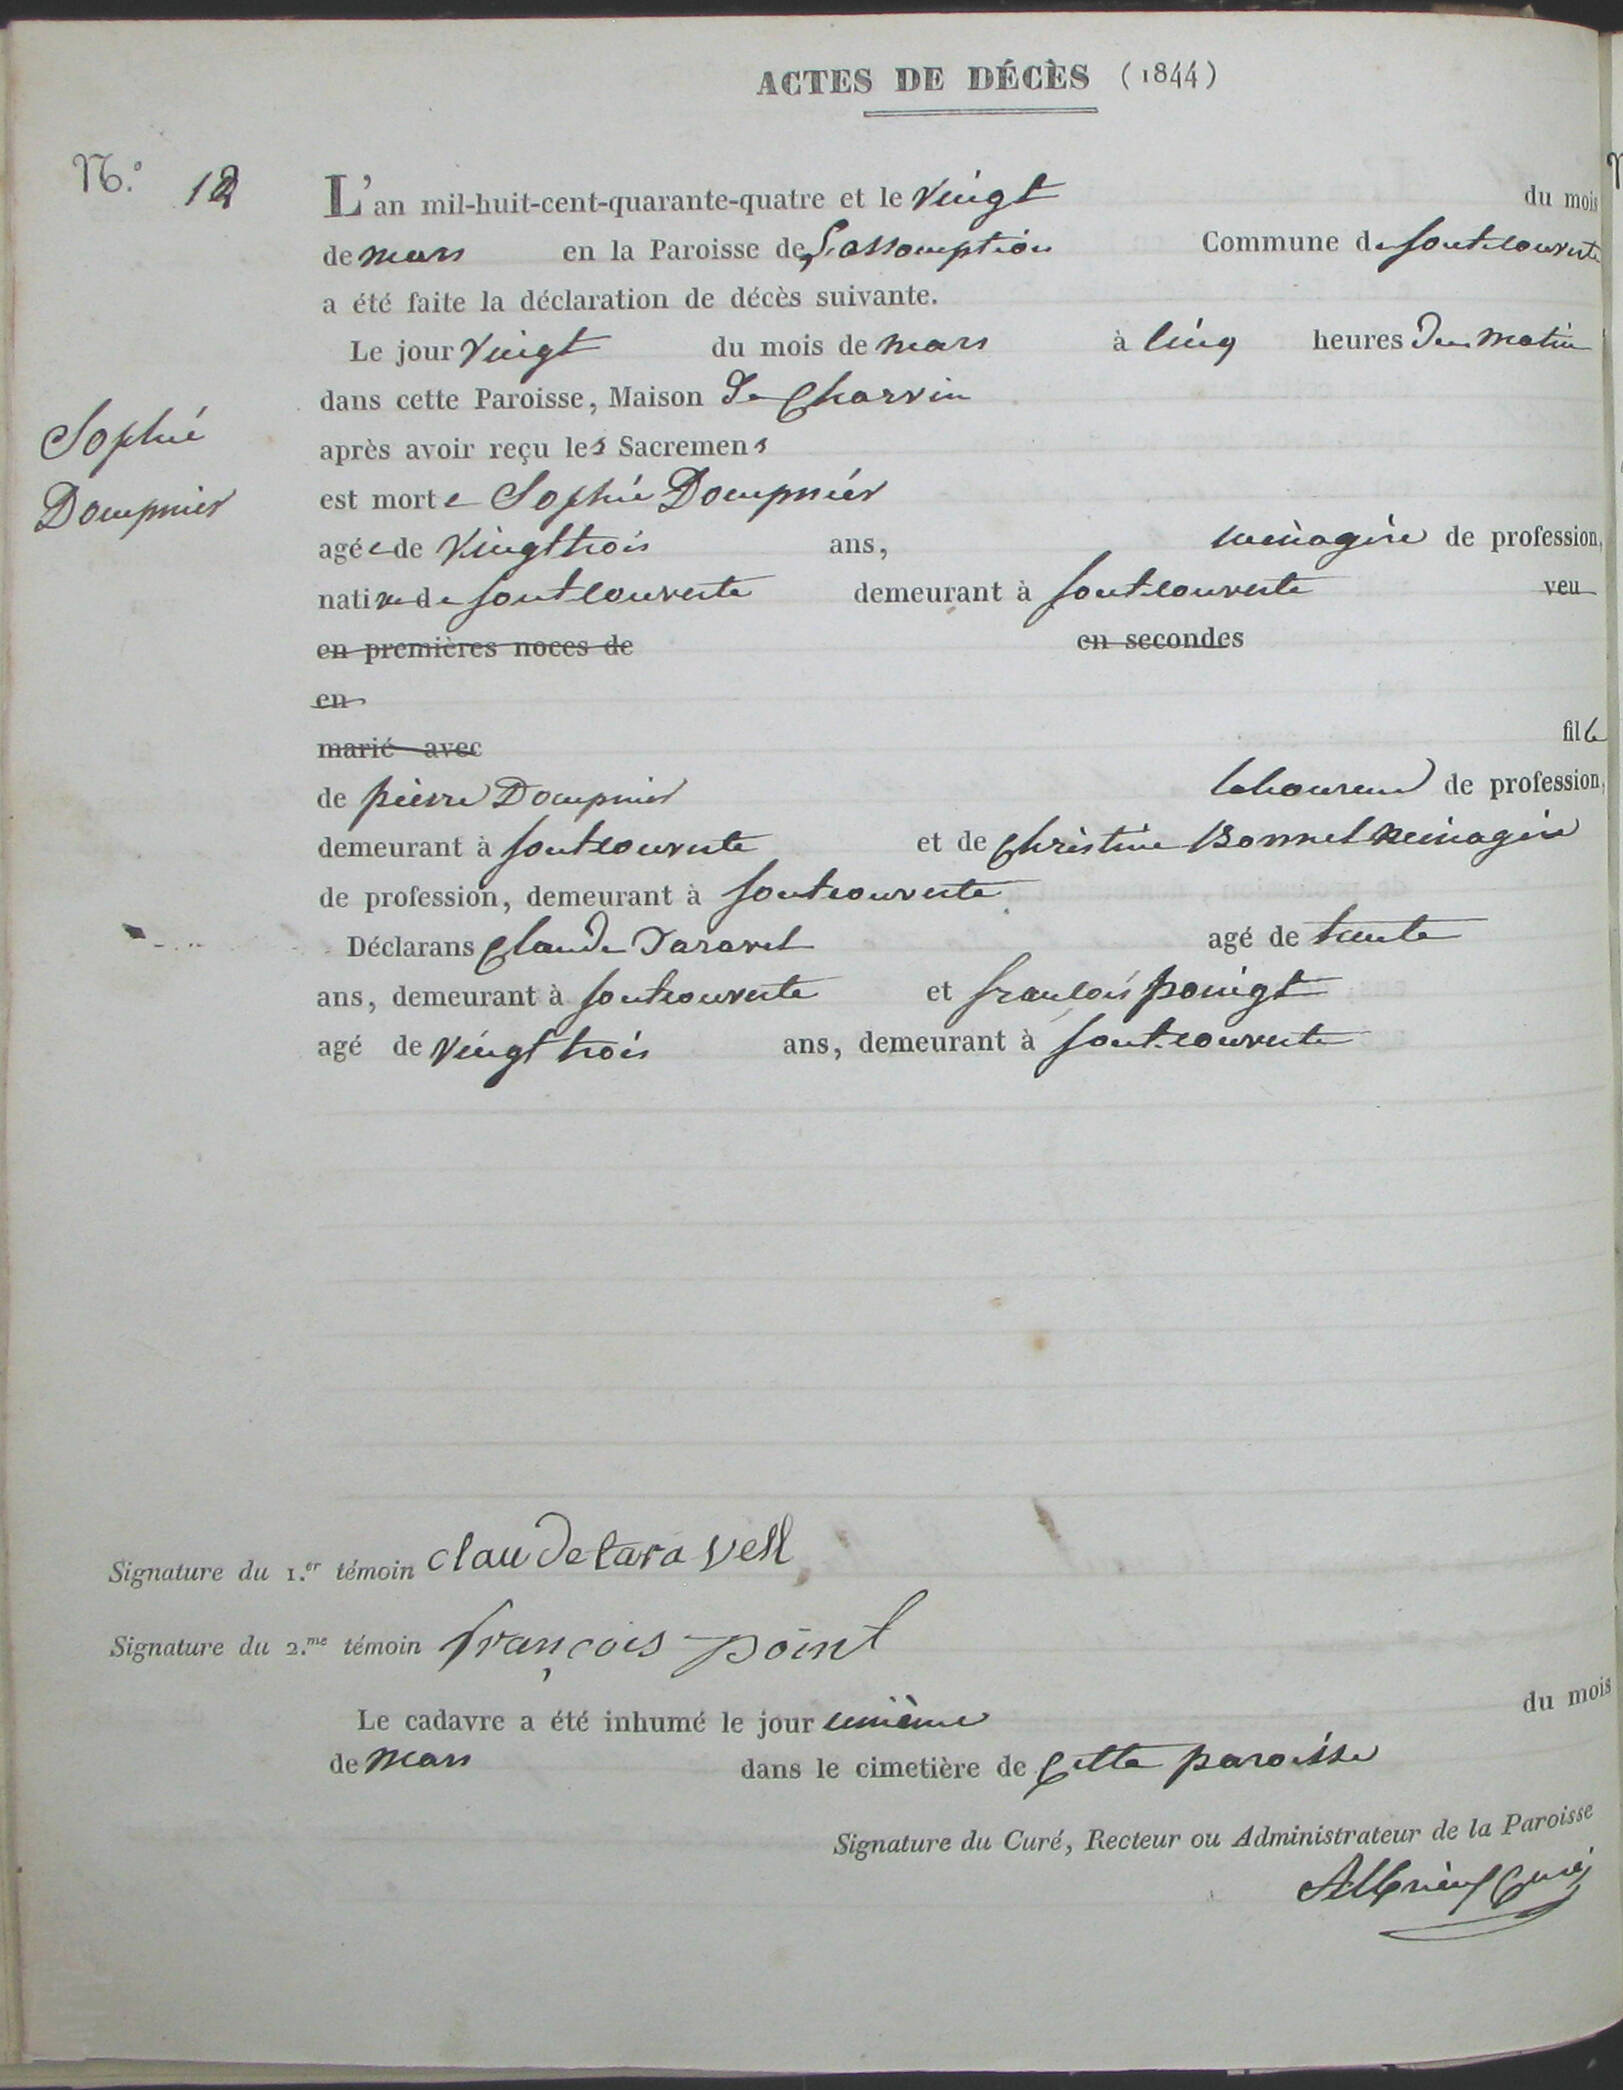 ACTES DE DÉCÈS (1844)
N.º 12
L'an mil-huit-cent-quarante-quatre et le vingt du mois
de mars en la Paroisse de L'assomption Commune de fontcouverte
a été faite la déclaration de décès suivante.
Le jour vingt du mois de mars à cinq heures du matin
dans cette Paroisse, Maison de Charvin
Sophie
Doupnier
après avoir reçu les Sacremens
est morte Sophie Doupnier
agée de vingt trois ans, ménagère de profession,
native de fontcouverte demeurant à fontcouverte veu
en premières noces de en secondes
en
marié avec fille
de pierre Doupnier laboureur de profession,
demeurant à fontcouverte et de christine Bonnel ménagère
de profession, demeurant à fontcouverte
Déclarans Claude Taravel agé de trente
ans, demeurant à fontcouverte et françois poingt
agé de vingt trois ans, demeurant à fontcouverte
Signature du 1.er témoin claude taravell
Signature du 2.me témoin françois point
Le cadavre a été inhumé le jour du mois
de mars dans le cimetière de cette paroisse
Signature du Curé, Recteur ou Administrateur de la Paroisse
Curé